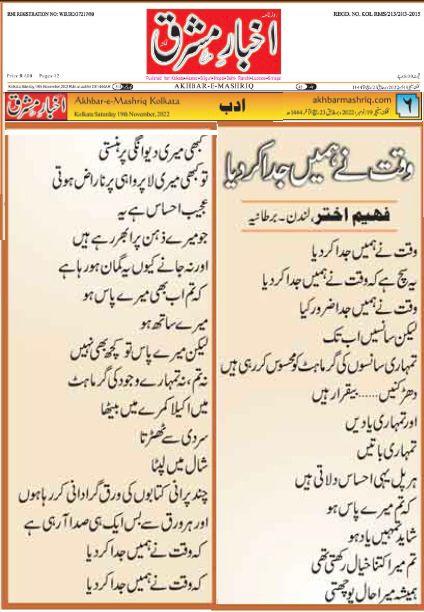 RNI REGISTRATION NO: WBURD/2
روزنامہ
REGD. NO. KOL RMS/213/2013-2015
اخبارِ مشرق
Price
Pages-12
AKHBAR-E-MASHRIQ
اخبارِ مشرق
Akhbar-e-Mashriq Kolkata
Kolkata Saturday 19th November, 2022
ادب
akhbarmashriq.com
۶
وقت نے ہمیں جدا کر دیا
فہیم اختر، لندن۔ برطانیہ
وقت نے ہمیں جدا کر دیا
یہ سچ ہے کہ وقت نے ہمیں جدا کر دیا
وقت نے ہمیں جدا ضرور کیا
لیکن سانسیں اب تک
تمہاری سانسوں کی گرماہٹ کو محسوس کر رہی ہیں
دھڑکنیں.....بیقرار ہیں
اور تمہاری یادیں
تمہاری باتیں
ہر پل یہی احساس دلاتی ہیں
کہ تم میرے پاس ہو
شاید تمہیں یاد ہو
تم میرا کتنا خیال رکھتی تھی
ہمیشہ میرا حال پوچھتی
کبھی میری دیوانگی پر ہنستی
تو کبھی میری لاپرواہی پر ناراض ہوتی
عجیب احساس ہے یہ
جو میرے ذہن پر ابھر رہے ہیں
اور نہ جانے کیوں یہ گمان ہو رہا ہے
کہ تم اب بھی میرے پاس ہو
میرے ساتھ ہو
لیکن میرے پاس تو کچھ بھی نہیں
نہ تم، نہ تمہارے وجود کی گرماہٹ
میں اکیلا کمرے میں بیٹھا
سردی سے ٹھٹرتا
شال میں لپٹا
چند پرانی کتابوں کی ورق گردانی کر رہا ہوں
اور ہر ورق سے بس ایک ہی صدا آ رہی ہے
کہ وقت نے ہمیں جدا کر دیا
کہ وقت نے ہمیں جدا کر دیا